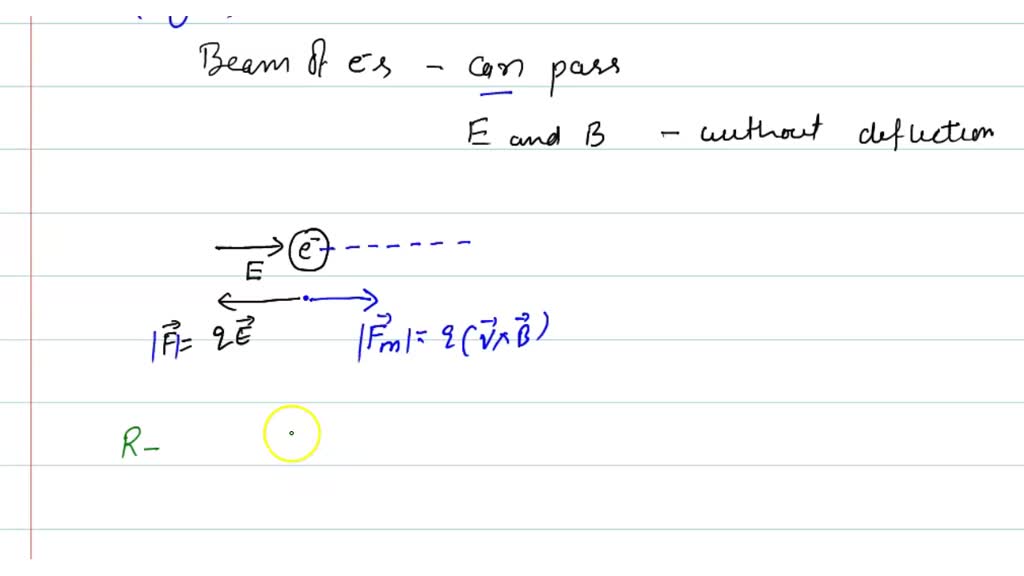 Beam of e⁻s – can pass
E and B – without deflection
e⁻
E
|F⃗| = qE⃗ |F⃗m| = q(v⃗ × B⃗)
R –